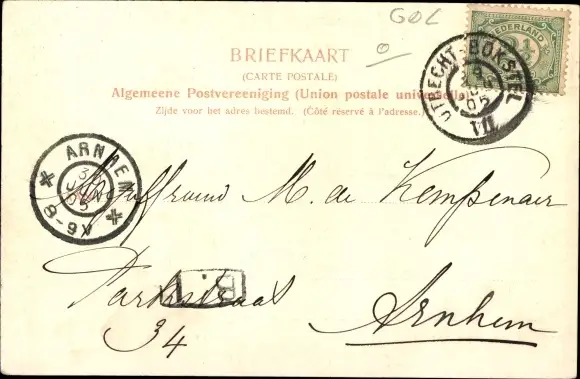 GOL
NEDERLAND
BRIEFKAART
(CARTE POSTALE)
Algemeene Postvereeniging (Union postale universelle)
Zijde voor het adres bestemd. (Côté réservé à l'adresse.)
UTRECHT-BOKSTEL
VII
ARNHEM
8-9V
Mejuffrouw M. de Kempenaer
Parkstraat
34
Arnhem